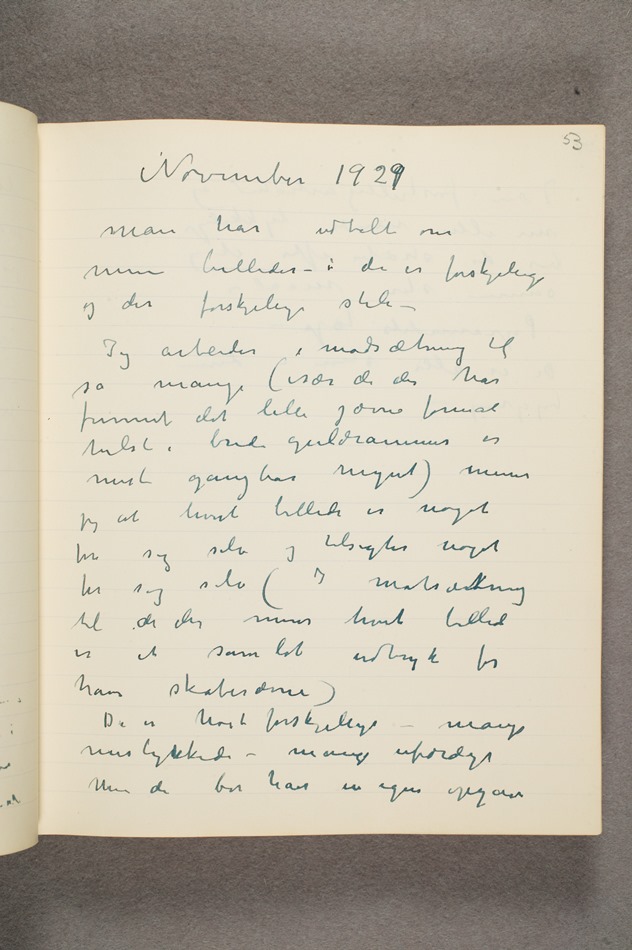 53
November 1929
man har udtalt om
mine billeder - : de er forskjelige
og der forskjelige stile -
Jeg arbeider i modsætning til
så mange (især de der har
funnet det lille jævne format
helst i brede guldrammer er
mest gangbar mynt) mener
jeg at hvert billede er noget
for sig selv og tilsigter noget
for sig selv (I motsætning
til de der mener hvert billed
er et samlet udtryk for
hans skaberævne)
De er høist forskjelige - mange
mislykkede - mange uferdige
Men de bør have en egen opgave